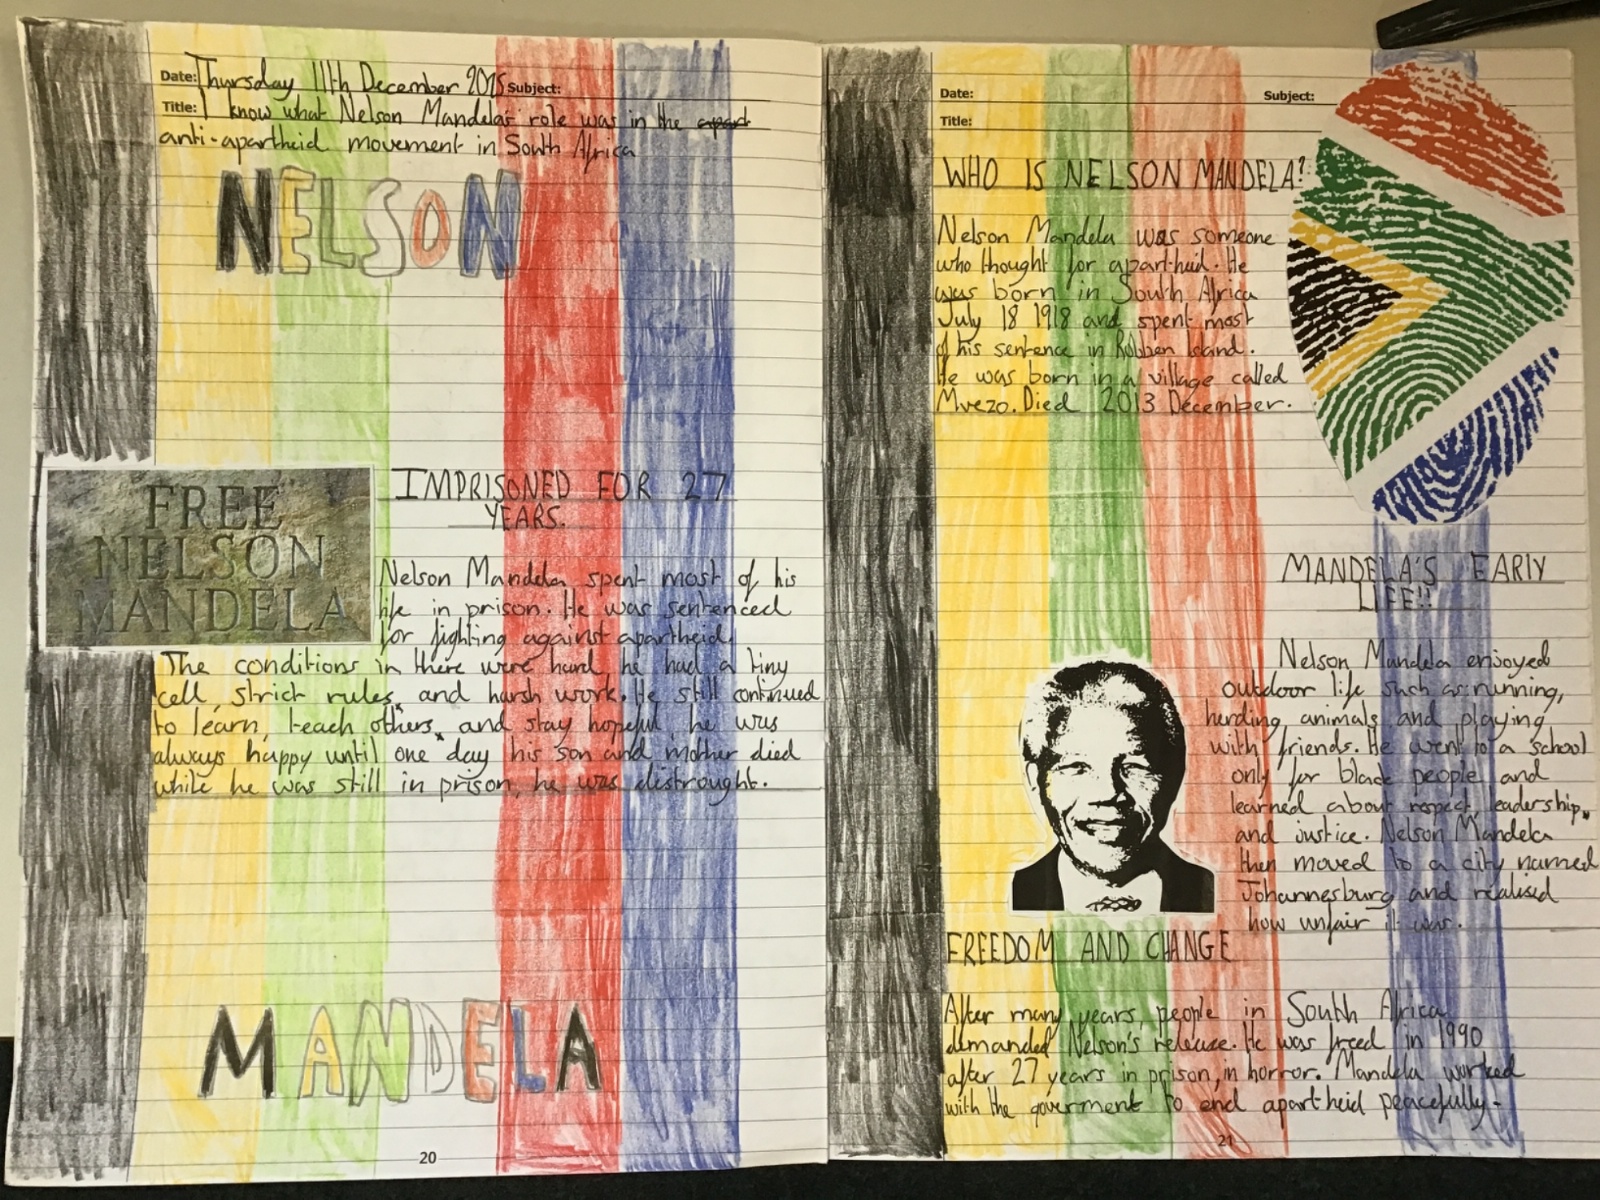 Date: Thursday 11th December 2025 Subject:
Title: I know what Nelson Mandela's role was in the apart
anti-apartheid movement in South Africa
NELSON
FREE
NELSON
MANDELA
IMPRISONED FOR 27
YEARS.
Nelson Mandela spent most of his
life in prison. He was sentenced
for fighting against apartheid.
The conditions in there were hard he had a tiny
cell, strict rules, and harsh work. He still continued
to learn, teach others, and stay hopeful, he was
always happy until one day his son and mother died
while he was still in prison, he was distrought.
MANDELA
20
Date: Subject:
Title:
WHO IS NELSON MANDELA?
Nelson Mandela was someone
who thought for apartheid. He
was born in South Africa
July 18 1918 and spent most
of his sentence in Robben Island.
He was born in a village called
Mvezo. Died 2013 December.
MANDELA'S EARLY
LIFE!!
Nelson Mandela enjoyed
outdoor life such as running,
herding animals and playing
with friends. He went to a school
only for black people and
learned about respect, leadership,
and justice. Nelson Mandela
then moved to a city named
Johannesburg and realised
how unfair it was.
FREEDOM AND CHANGE
After many years, people in South Africa
demanded Nelson's release. He was freed in 1990
after 27 years in prison, in horror. Mandela worked
with the goverment to end apartheid peacefully.
21